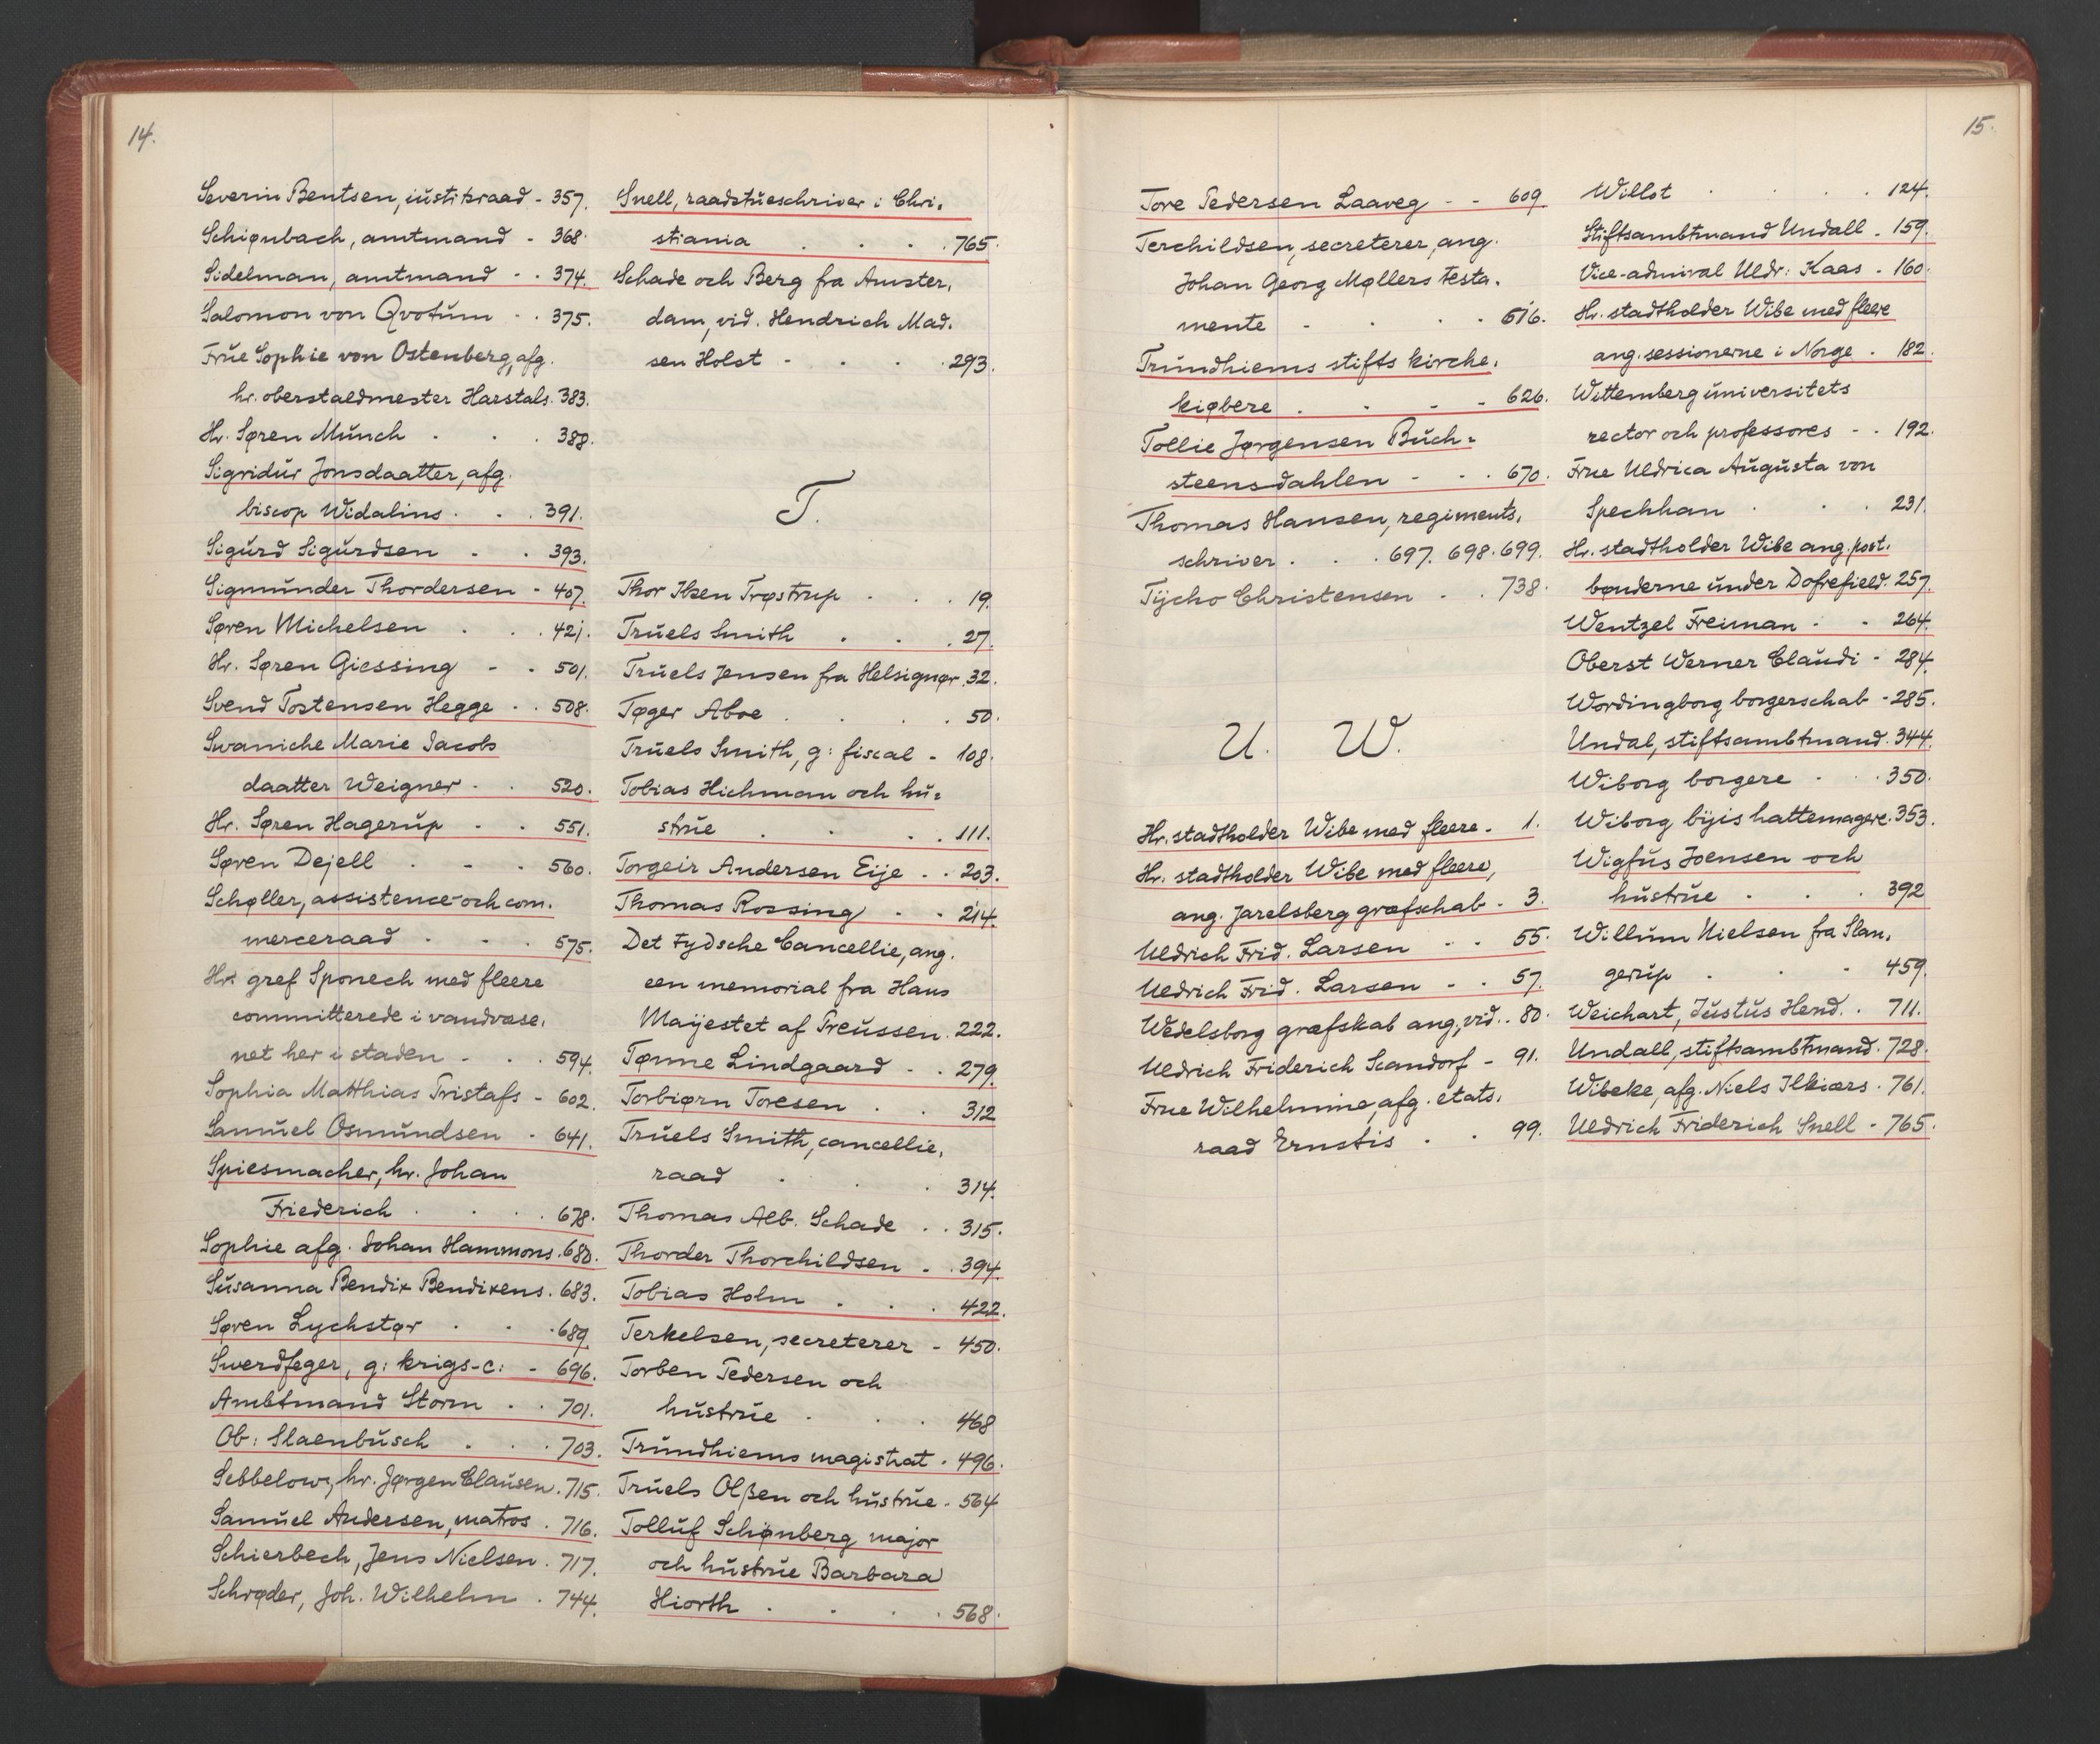 14.
Severin Bentsen, iustitsraad - 357.
Schiønbach, amtmand - 368.
Sidelman, amtmand - . 374.
Salomon von Qvotum - . 375.
Frue Sophie von Ostenberg, afg.
hr. oberstaldmester Harstals. 383.
Hr. Søren Munch . . . 388.
Sigridur Jonsdaatter, afg.
biscop Widalins . . . 391.
Sigurd Sigurdsen . . 393.
Sigmunder Thordersen - 407.
Søren Michelsen . . . 421.
Hr. Søren Giessing - - 501.
Svend Tostensen Hegge . . 508.
Swaniche Marie Jacobs
daatter Weigner . . 520.
Hr. Søren Hagerup . . 551.
Søren Dejell . - . 560.
Schøller, assistence- och com.
merceraad . . . 575.
Hr. gref Sponech med fleere
committerede i vandvæse.
net her i staden - . . 594.
Sophia Matthias Tristafs - 602.
Samuel Osmundsen - 641.
Spiesmacher, hr. Johan
Friederich . . . . 678.
Sophie afg. Johan Hammons . 680.
Susanna Bendix Bendixens . 683.
Søren Lychstør . . . 689.
Swerdfeger, g: krigs-c: - 696.
Ambtmand Storm . . 701.
Ob: Slaenbusch . . . 703.
Sebbelow, hr. Jørgen Clausen . 715.
Samuel Andersen, matros . 716.
Schierbech, Jens Nielsen . 717.
Schrøder, Joh. Wilhelm . 744.
Snell, raadstueschriver i Chri.
stiania . . . . 765.
Schade och Berg fra Amster.
dam, vid. Hendrich Mad.
sen Holst - . . . 293.
T.
Thor Ibsen Trøstrup . . . 19.
Truels Smith . . . 27.
Truels Jensen fra Helsignør . 32.
Tøger Aboe . . . . 50.
Truels Smith, g: fiscal - 108.
Tobias Hichman och hu=
strue . . . . 111.
Torgeir Andersen Eije . . 203.
Thomas Rossing . . 214.
Det tydsche Cancellie, ang.
een memorial fra Hans
Mayestet af Preussen . 222.
Tønne Lindgaard - . 279.
Torbiørn Toresen . . 312
Truels Smith, cancellie.
raad . . . 314.
Thomas Alb. Schade . . 315.
Thorder Thorchildsen - . 394.
Tobias Holm . . . 422.
Terkelsen, secreterer - 450.
Torben Pedersen och
hustrue . . . 468
Trundhiems magistrat . 496.
Truels Olßen och hustrue . 564
Tolluf Schønberg major
och hustrue Barbara
Hiorth . . . . 568.
15.
Tore Pedersen Laaveg - - 609.
Terchildsen, secreterer, ang.
Johan Georg Møllers testa.
mente - . . . 616.
Trundhiems stifts kirche.
kiøbere . . - - 626.
Tollie Jørgensen Buch=
steensdahlen - - . 670.
Thomas Hansen, regiments.
schriver . . . 697. 698. 699.
Tÿcho Christensen . . 738.
U. W.
Hr. stadtholder Wibe med fleere - 1.
Hr. stadtholder Wibe med fleere,
ang. Jarelsberg græfschab - 3.
Uldrich Frid. Larsen - . 55.
Uldrich Frid. Larsen - . 57.
Wedelsborg græfskab ang, vid. . 80.
Uldrich Friderich Scandorf - 91.
Frue Wilhelmine, afg. etats.
raad Ernstis . . 99.
Willot . . . . 124.
Stiftsambtmand Undall - 159.
Vice-admiral Uldr: Kaas - 160.
Hr. stadtholder Wibe med fleere
ang. sessionerne i Norge . 182.
Wittemberg universitets
rector och professores - . 192.
Frue Uldrica Augusta von
Spechhan . . . 231.
Hr. stadtholder Wibe ang. post.
bønderne under Dofrefield . 257.
Wentzel Freiman . . 264.
Oberst Werner Claudi - 284.
Wordingborg borgerschab - 285.
Undal, stiftsambtmand . 344.
Wiborg borgere . . 350.
Wiborg bÿis hattemagere . 353.
Wigfus Joensen och
hustrue . . . 392
Willum Nielsen fra Slan.
gerup . . - 459.
Weichart, Justus Hend. . 711.
Undall, stiftsambtmand . 728.
Wibeke, afg. Niels Ilkiærs . 761.
Uldrich Friderich Snell - 765.